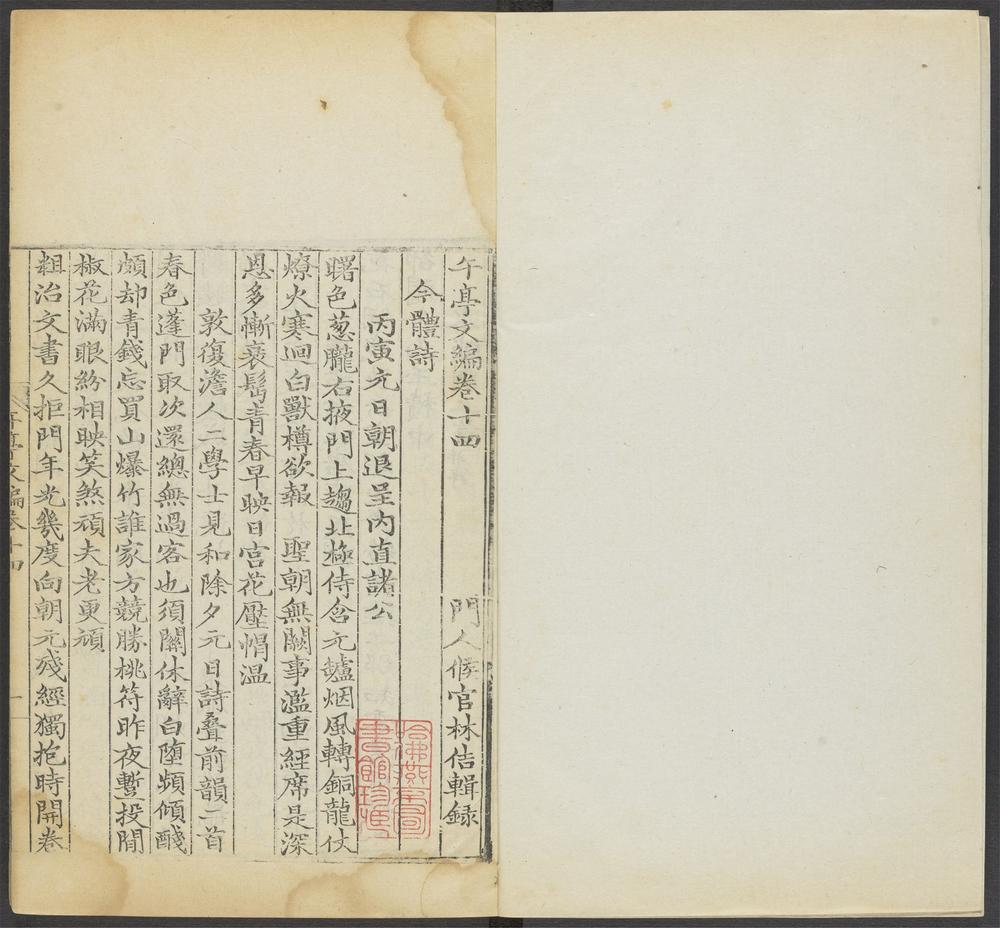 午亭文編卷十四
門人候官林佶輯録
今體詩
丙寅元日朝退呈内直諸公
曙色葱朧右掖門上趨北極侍含元鑪烟風轉銅龍仗
燎火寒迴白獸樽欲報　聖朝無闕事濫重經席是深
恩多慚衰髩青春早映日宫花壓帽温
敦復澹人二學士見和除夕元日詩叠前韻二首
春色蓬門取次還總無過客也須關休辭白墮頻傾醆
頗却青錢忘買山爆竹誰家方競勝桃符昨夜蹔投閒
椒花滿眼紛相映笑煞頑夫老更頑
粗治文書久拒門年光幾度向朝元殘經獨抱時開卷
午亭文編卷十四
一
哈佛燕京圖
書館珍藏